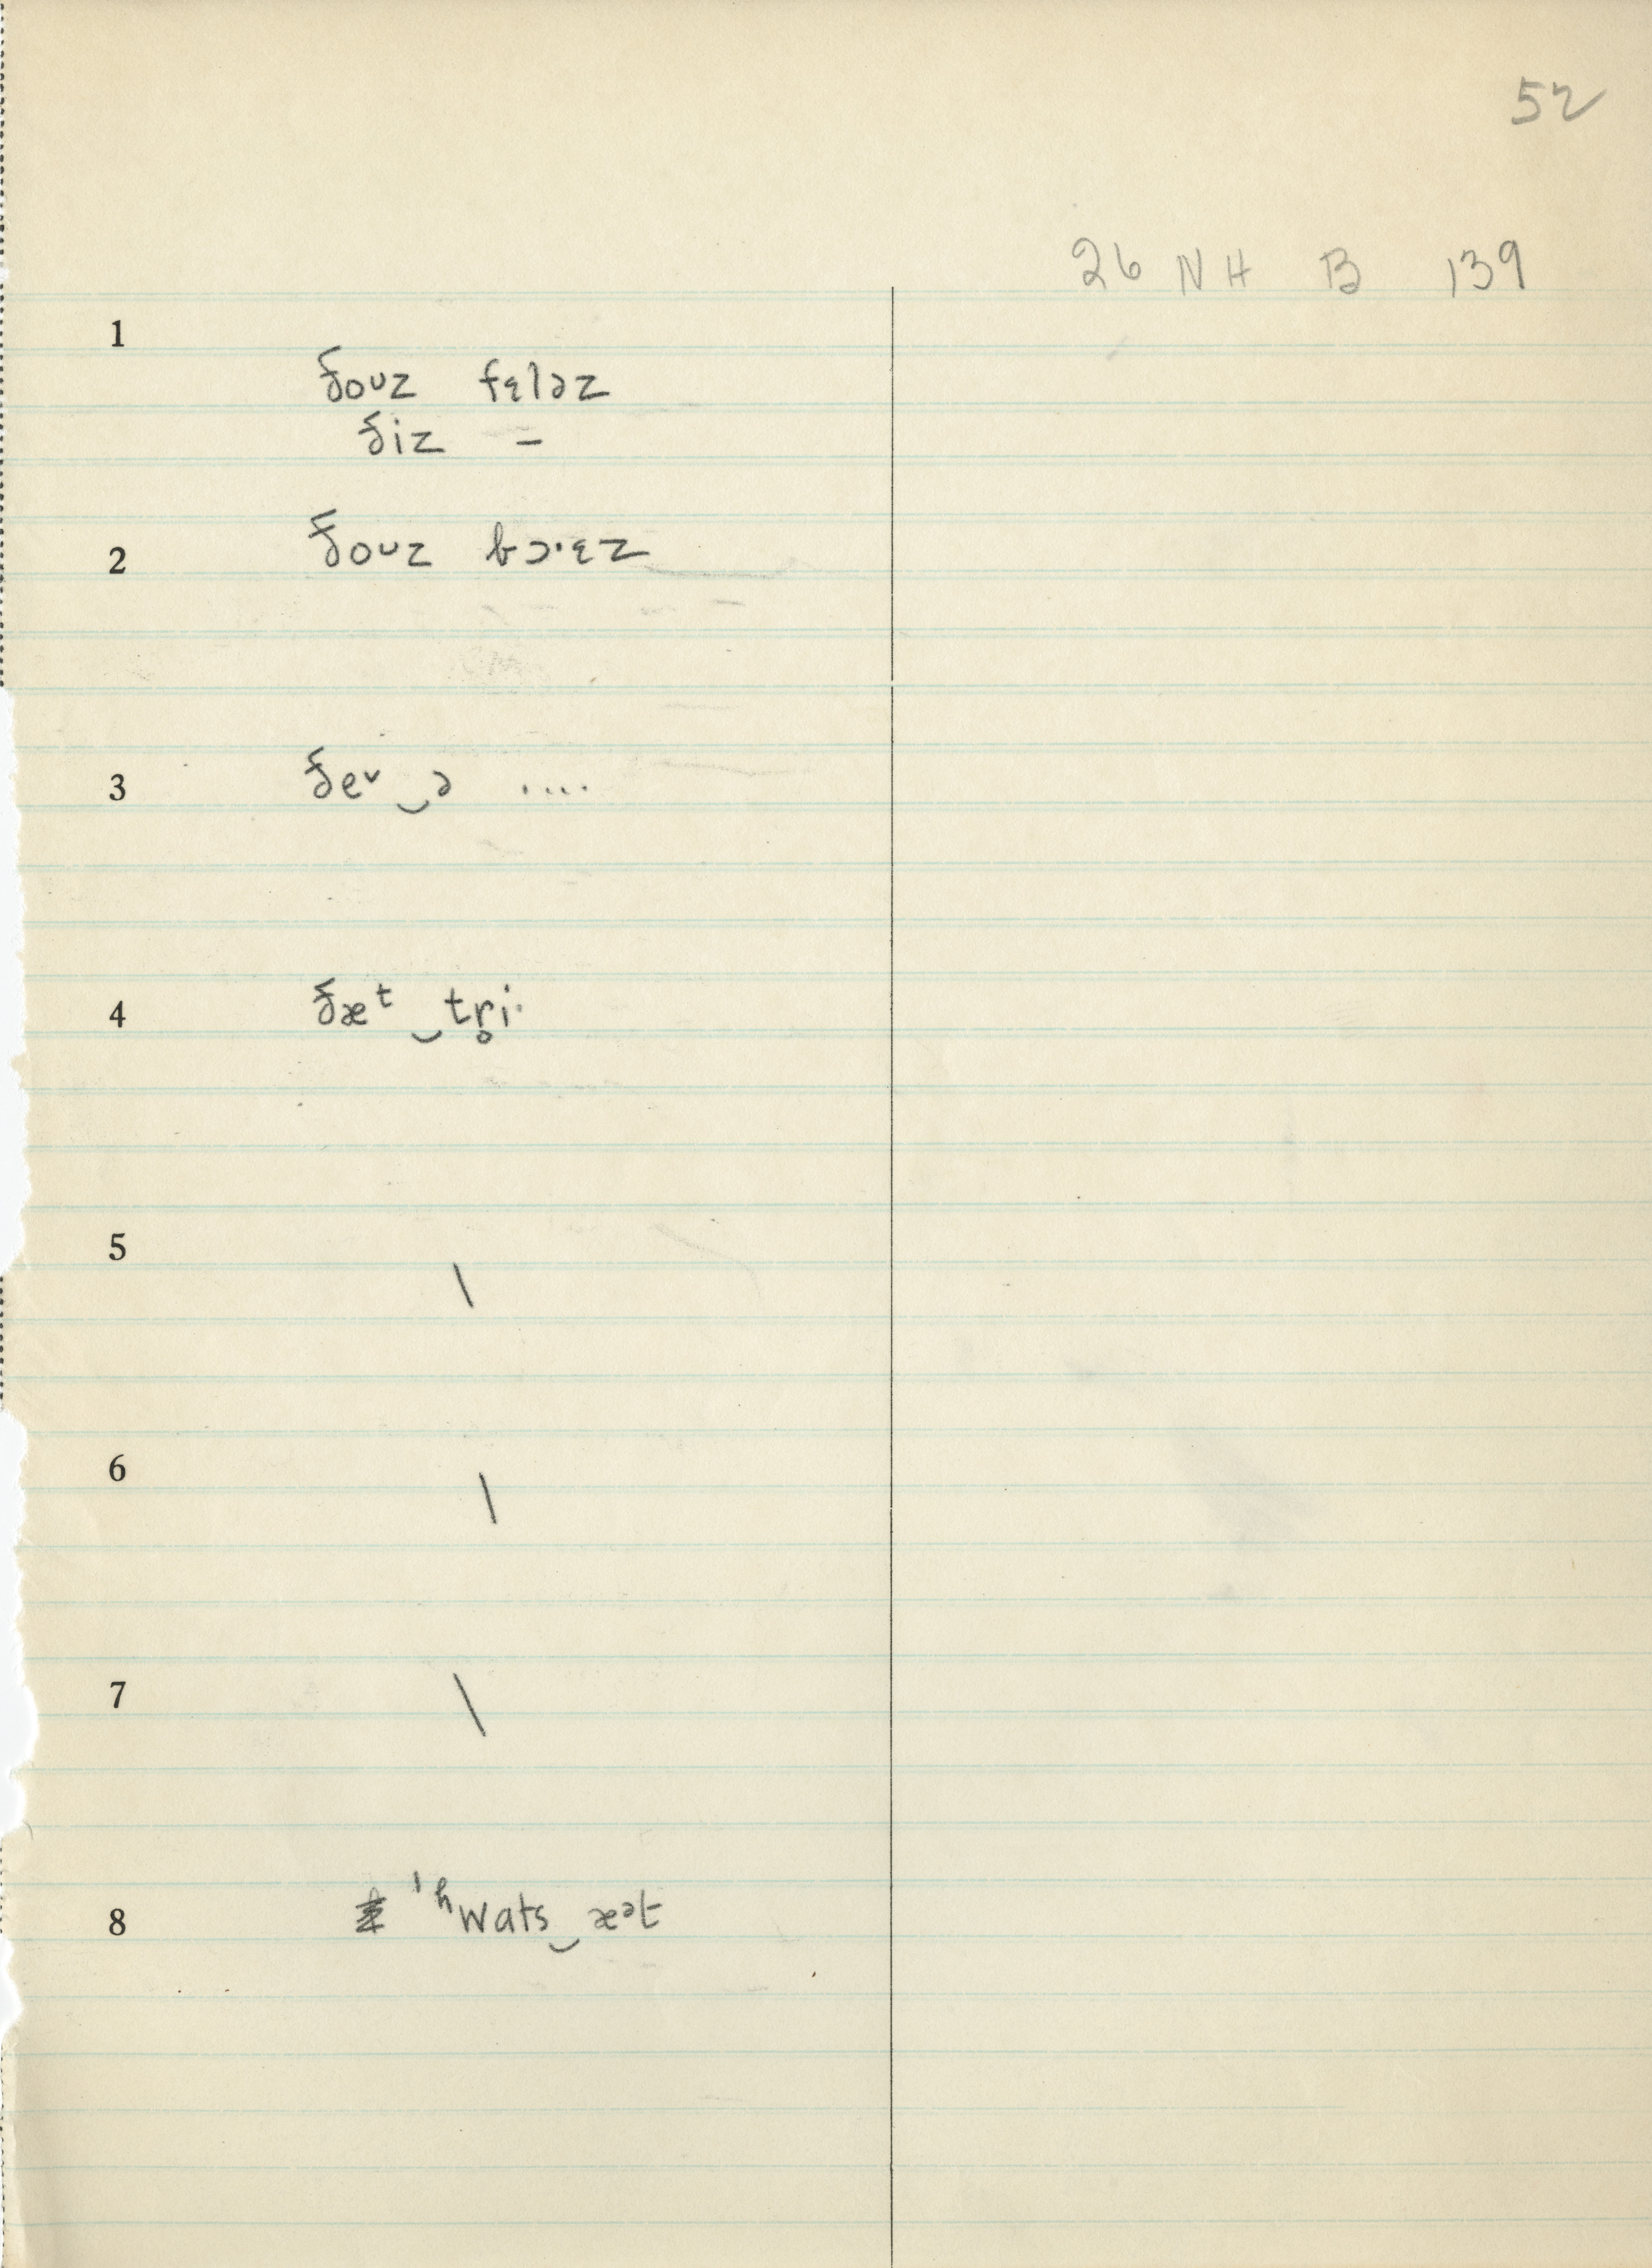 52
26 NH B 139
1
ðoᴜz fɛləz
ðiz –
2 ðoᴜz bɔ·ɛz
3 ðeᵛ‿ə ....
4 ðæᵗ‿tr̥i·
5 \
6 \
7 \
8 ˈʰwats‿æᵊt